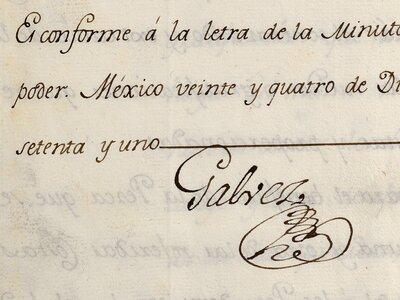 Es conforme á la letra de la Minuta
poder. México veinte y quatro de Di
setenta y uno
Galvez